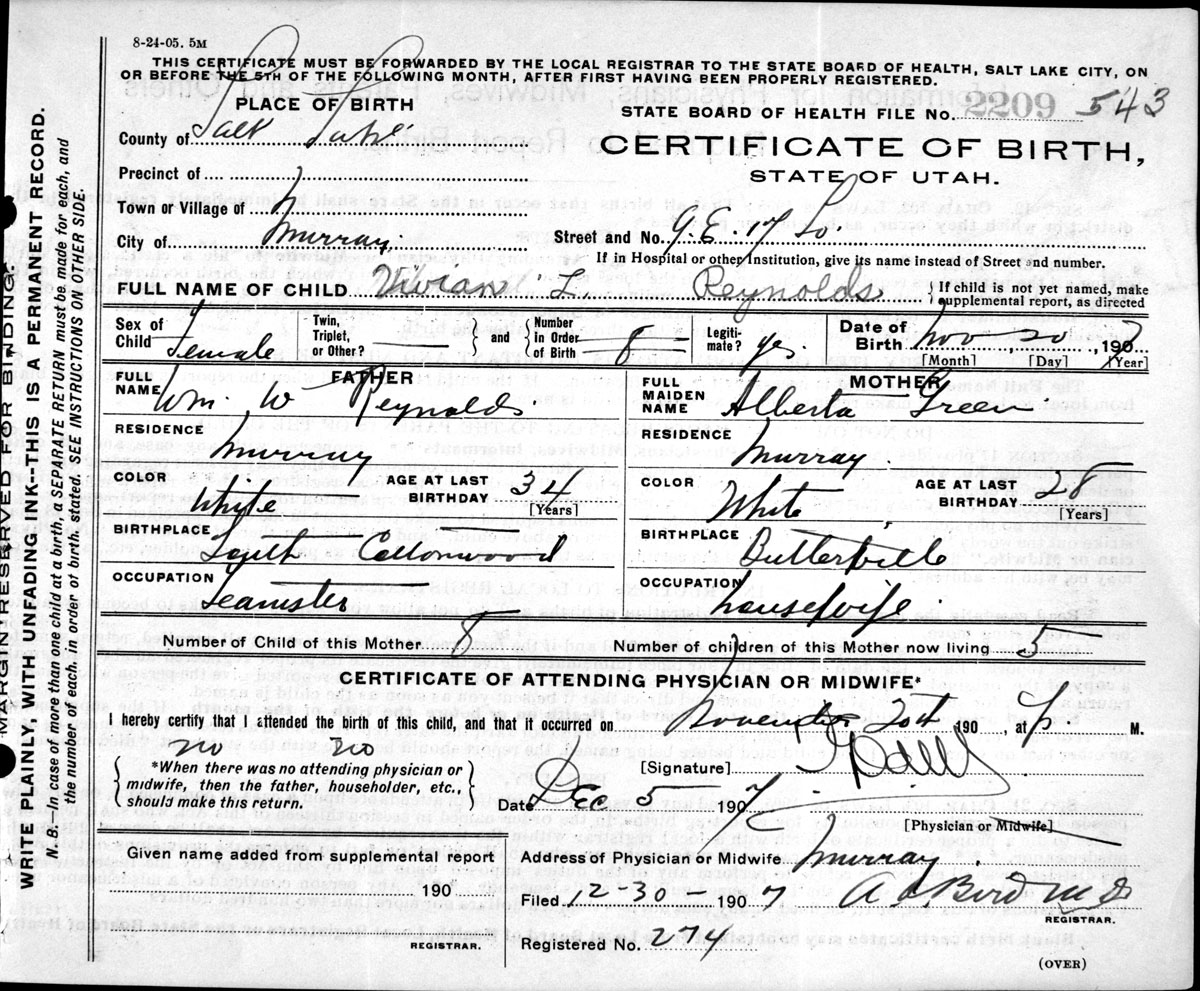 8-24-05. 5M
THIS CERTIFICATE MUST BE FORWARDED BY THE LOCAL REGISTRAR TO THE STATE BOARD OF HEALTH, SALT LAKE CITY, ON
OR BEFORE THE 5TH OF THE FOLLOWING MONTH, AFTER FIRST HAVING BEEN PROPERLY REGISTERED.
PLACE OF BIRTH
STATE BOARD OF HEALTH FILE No. 2209 543
County of Salt Lake
CERTIFICATE OF BIRTH,
STATE OF UTAH.
Precinct of
Town or Village of
City of Murray
Street and No. G. E. 7 So.
If in Hospital or other Institution, give its name instead of Street and number.
FULL NAME OF CHILD Vivian L. Reynolds { If child is not yet named, make supplemental report, as directed
Sex of Child Female Twin, Triplet, or Other? and Number in Order of Birth 8 Legiti- mate? yes. Date of Birth Nov 20, 1907
[Month] [Day] [Year]
FATHER MOTHER
FULL NAME Wm. W Reynolds FULL MAIDEN NAME Alberta Green
RESIDENCE Murray RESIDENCE Murray.
COLOR White AGE AT LAST BIRTHDAY 34 [Years] COLOR White, AGE AT LAST BIRTHDAY 28 [Years]
BIRTHPLACE South Cottonwood BIRTHPLACE Butterville
OCCUPATION Teamster OCCUPATION housewife
Number of Child of this Mother 8 Number of children of this Mother now living 5
CERTIFICATE OF ATTENDING PHYSICIAN OR MIDWIFE*
I hereby certify that I attended the birth of this child, and that it occurred on November 20th 190 , at P M.
no no
{ *When there was no attending physician or midwife, then the father, householder, etc., should make this return. }
[Signature]
Date Dec 5 1907
[Physician or Midwife]
Given name added from supplemental report
190
REGISTRAR.
Address of Physician or Midwife Murray
Filed 12-30 1907 REGISTRAR.
Registered No. 274
(OVER)
MARGIN RESERVED FOR BINDING.
WRITE PLAINLY, WITH UNFADING INK--THIS IS A PERMANENT RECORD.
N. B.—In case of more than one child at a birth, a SEPARATE RETURN must be made for each, and
the number of each, in order of birth, stated. SEE INSTRUCTIONS ON OTHER SIDE.